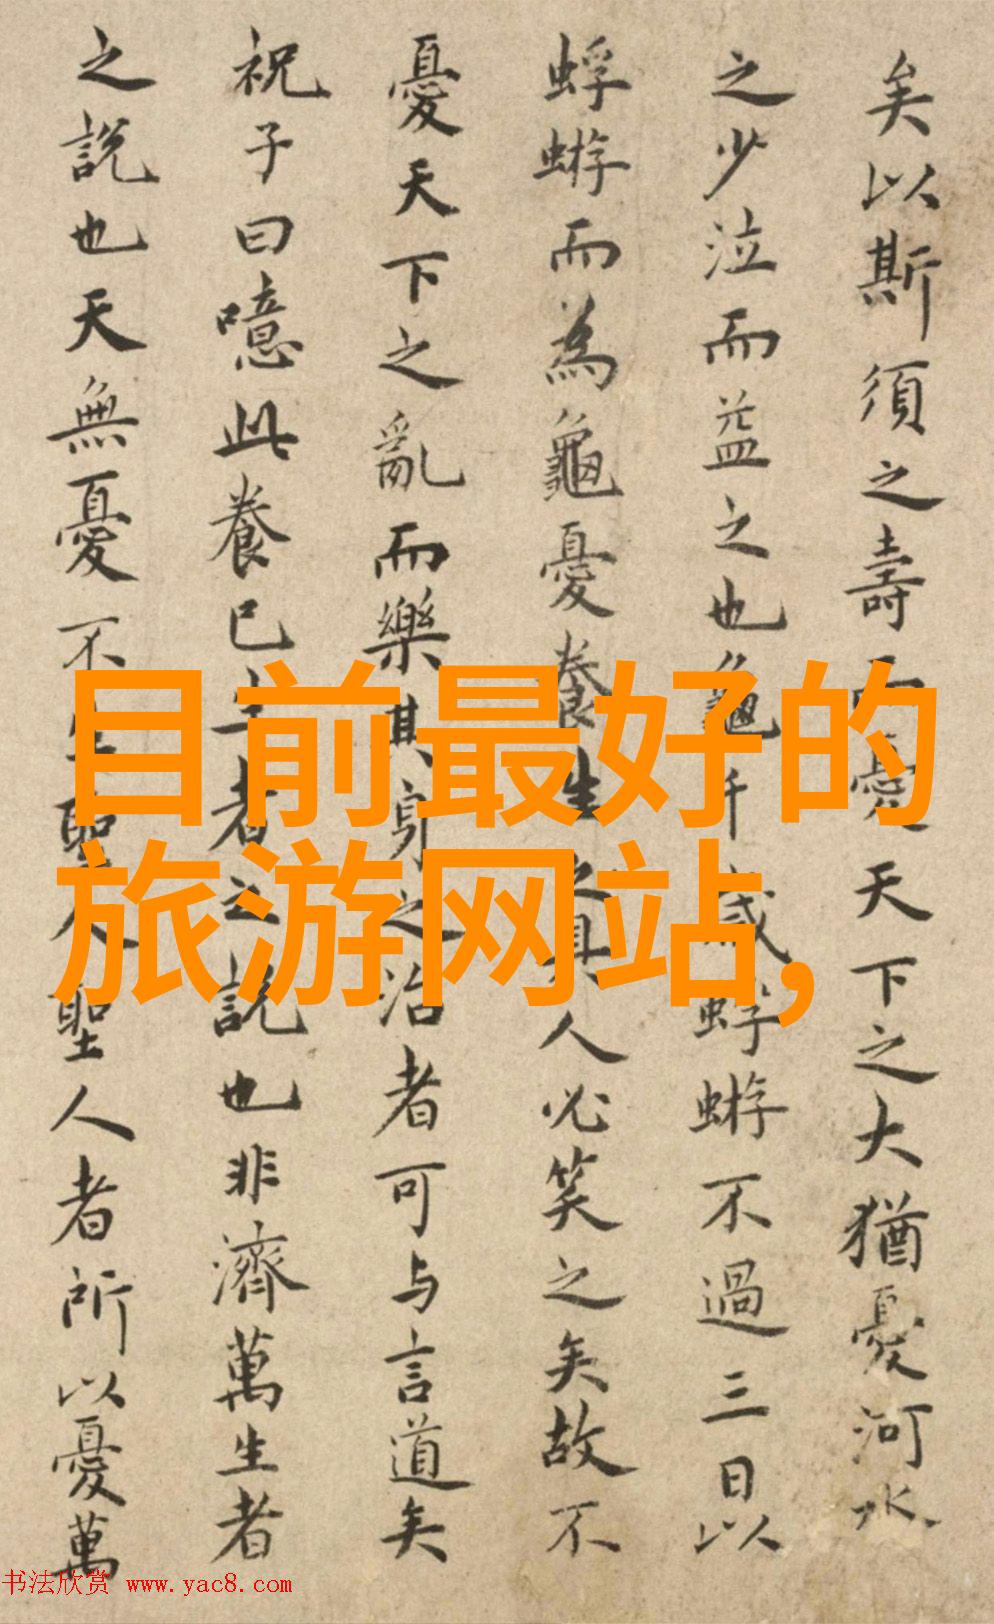 矣以斯須之壽而憂天下之大猶憂河水
之少泣而益之也龜千歲蜉蝣不過三日以
蜉蝣而為龜憂養生之具人必笑之矣故不
憂天下之亂而樂其身之治者可与言道矣
祝子曰噫此養已生者之説也非濟萬生者
之說也天無憂不生聖人聖人者所以憂萬
目前最好的
旅游网站,
书法欣赏 www.yac8.com